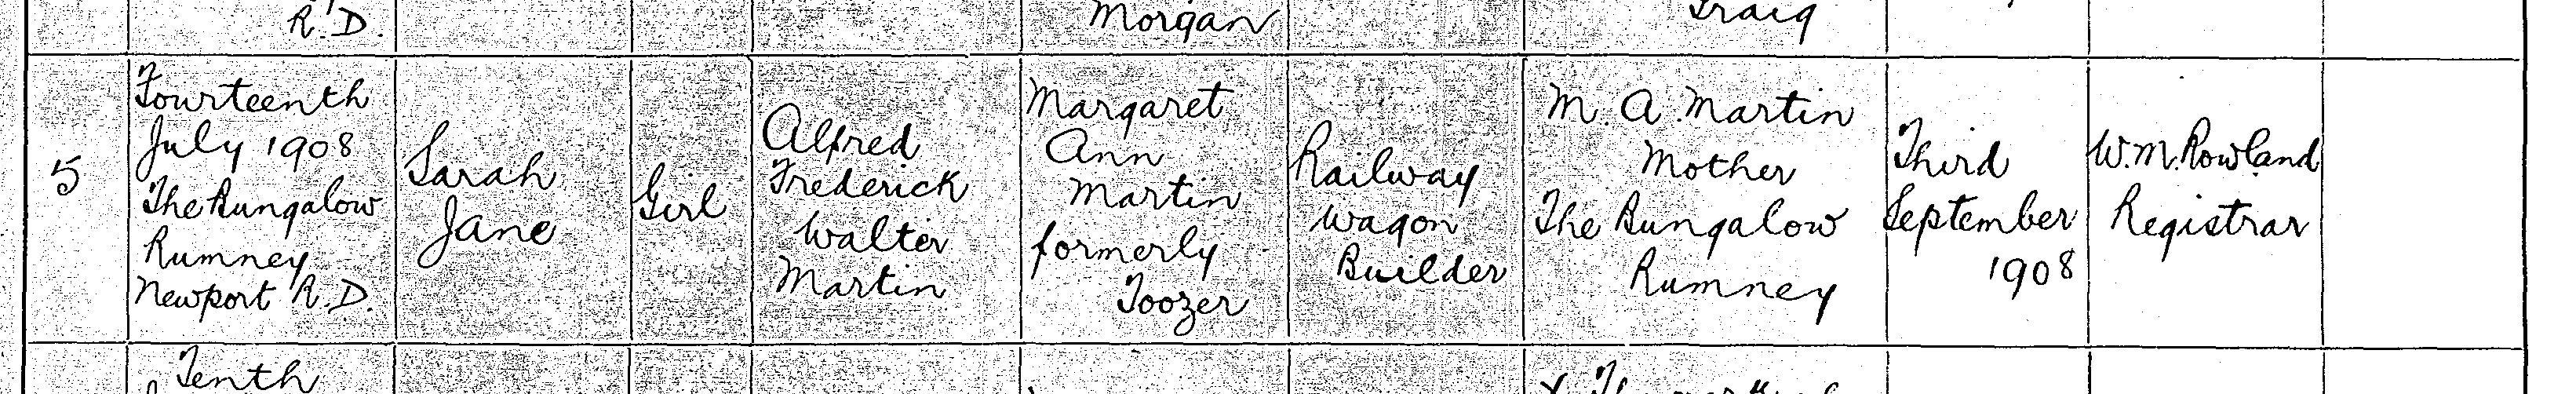 R.D.
Morgan
Graig
5
Fourteenth
July 1908
The Bungalow
Rumney
Newport R.D.
Sarah
Jane
Girl
Alfred
Frederick
Walter
Martin
Margaret
Ann
Martin
formerly
Toozer
Railway
Wagon
Builder
M. A. Martin
Mother
The Bungalow
Rumney
Third
September
1908
W. M. Rowland
Registrar
Tenth